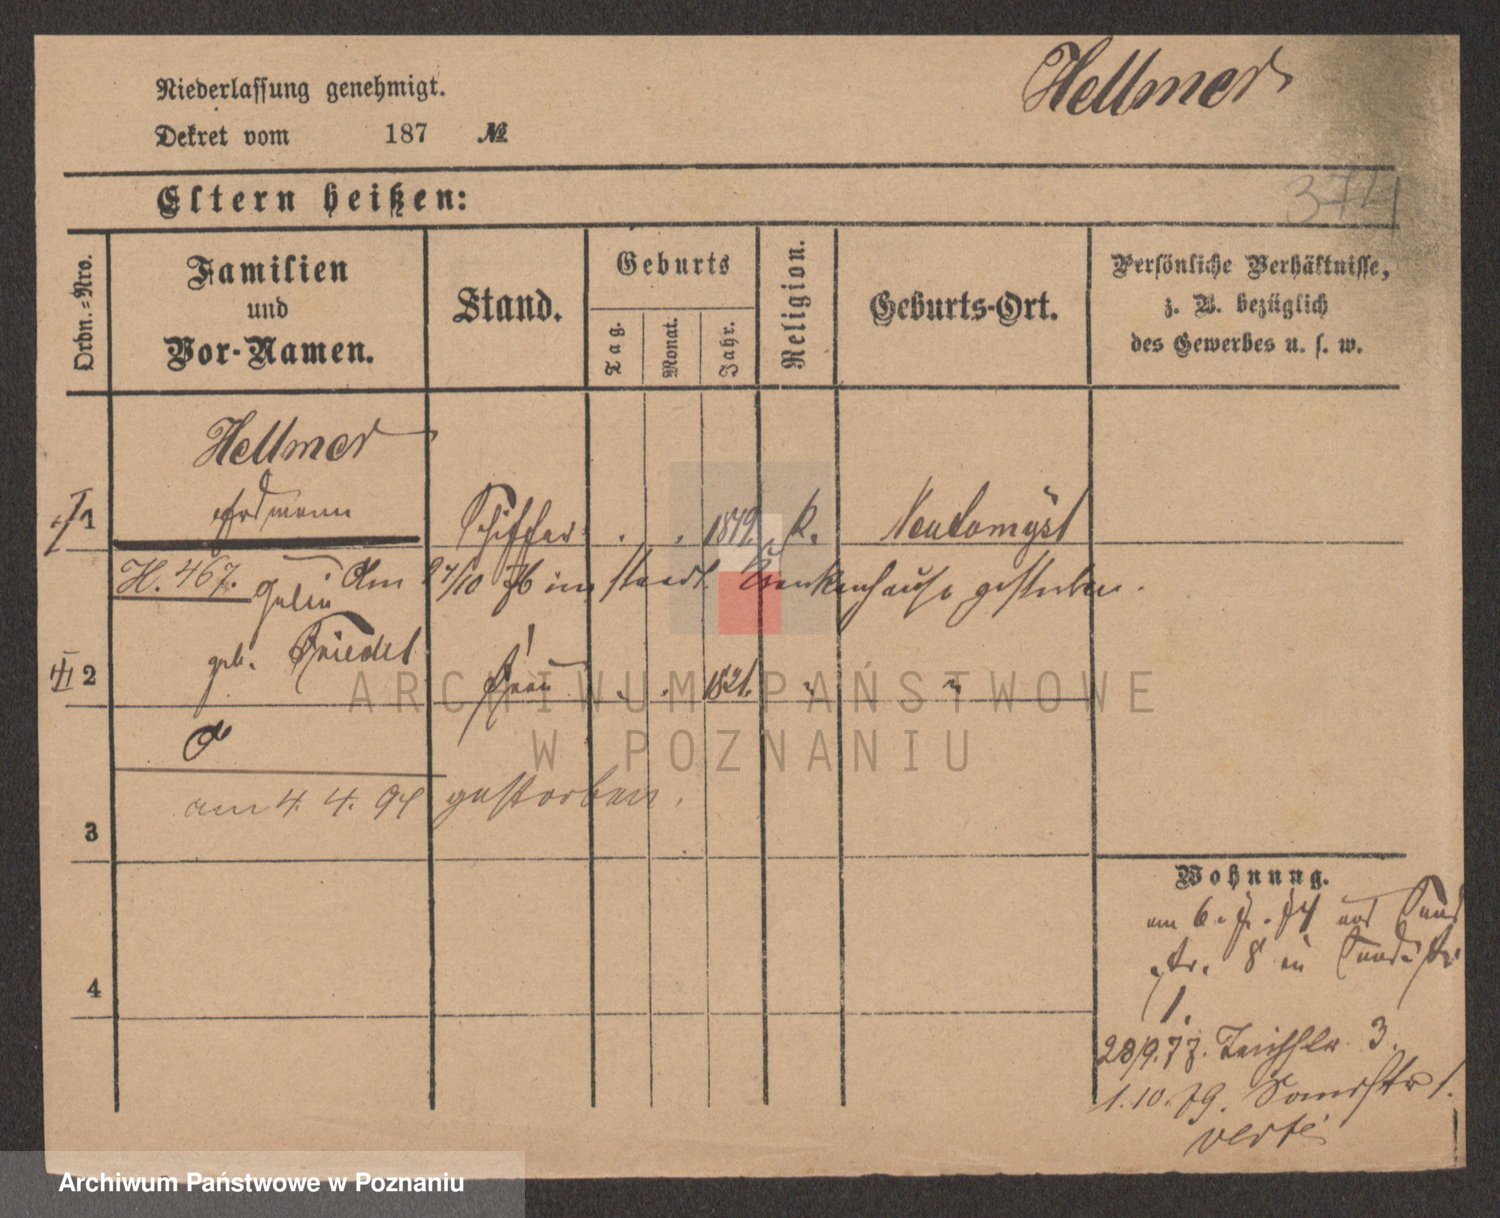 Hellmer
Niederlassung genehmigt.
Dekret vom 187 №
374
Eltern heißen:
Ordn.=Nro.
Familien
und
Vor-Namen.
Stand.
Geburts
Tag.
Monat.
Jahr.
Religion.
Geburts-Ort.
Persönliche Verhältnisse,
z. B. bezüglich
des Gewerbes u. s. w.
Hellmer
1 Erdmann Schiffer . . 1819. k. Neutomysl
H. 467. Am 24/10 76 im stadt. Krankenhause gestorben.
geb. Friedel
2 Frau . . 1821. " "
am 4. 4. 94 gestorben.
3
Wohnung.
am 6. 7. 74 aus Sand
str. 8 in Sandstr
1.
4
28/9. 77. Teichstr. 3.
1. 10. 79. Sandstr 1.
verte
ARCHIWUM PAŃSTWOWE
W POZNANIU
Archiwum Państwowe w Poznaniu